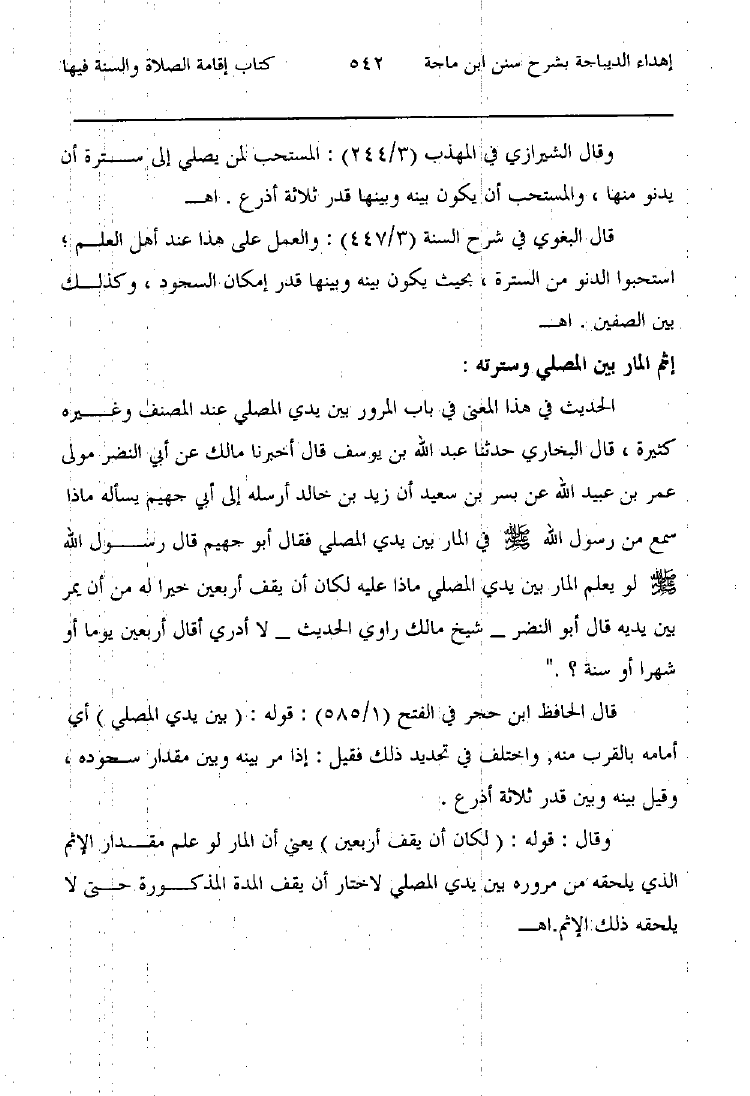 إهداء الديباجة بشرح سنن ابن ماجة ٥٤٢ كتاب إقامة الصلاة والسنة فيها
وقال الشيرازي في المهذب (٢٤٤/٣) : المستحب لمن يصلي إلى سترة أن
يدنو منها ، والمستحب أن يكون بينه وبينها قدر ثلاثة أذرع . اهـ
قال البغوي في شرح السنة (٤٤٧/٣) : والعمل على هذا عند أهل العلم ؛
استحبوا الدنو من السترة ، بحيث يكون بينه وبينها قدر إمكان السجود ، وكذلك
بين الصفين . اهـ
إثم المار بين المصلي وسترته :
الحديث في هذا المعنى في باب المرور بين يدي المصلي عند المصنف وغيره
كثيرة ، قال البخاري حدثنا عبد الله بن يوسف قال أخبرنا مالك عن أبي النضر مولى
عمر بن عبيد الله عن بسر بن سعيد أن زيد بن خالد أرسله إلى أبي جهيم يسأله ماذا
سمع من رسول الله ﷺ في المار بين يدي المصلي فقال أبو جهيم قال رسول الله
ﷺ لو يعلم المار بين يدي المصلي ماذا عليه لكان أن يقف أربعين خيرا له من أن يمر
بين يديه قال أبو النضر _ شيخ مالك راوي الحديث _ لا أدري أقال أربعين يوما أو
شهرا أو سنة ؟ ."
قال الحافظ ابن حجر في الفتح (٥٨٥/١) : قوله : ( بين يدي المصلي ) أي
أمامه بالقرب منه, واختلف في تحديد ذلك فقيل : إذا مر بينه وبين مقدار سجوده ،
وقيل بينه وبين قدر ثلاثة أذرع .
وقال : قوله : ( لكان أن يقف أربعين ) يعني أن المار لو علم مقدار الإثم
الذي يلحقه من مروره بين يدي المصلي لاختار أن يقف المدة المذكورة حتى لا
يلحقه ذلك الإثم.اهـ